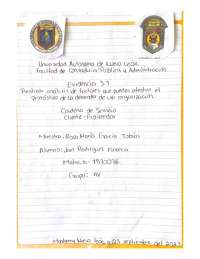 Universidad Autónoma de Nuevo León
Facultad de Contaduría Pública y Administración
Evidencia 3.1
Realizar análisis de factores que puedan afectar el
pronóstico de la demanda de una organización
Cadena de Servicio
Cliente-Proveedor
Maestra: Rosa María García
Alumno: Rodríguez
Matrícula:
Grupo:
Monterrey Nuevo León, a septiembre del